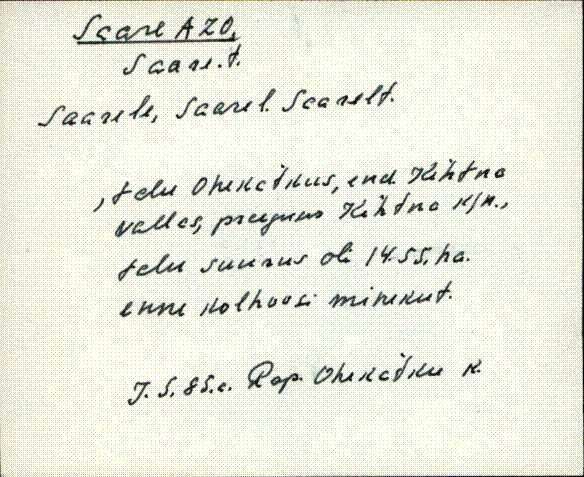 Saare A20,
Saare.t.
Saarele, Saarel. Saarelt.
, talu Ohekatkus, end. Kehtna
vallas, praegune Kehtna k/n.,
talu suurus oli 14.55. ha.
enne kolhoosi minekut.
J. S. 85.a. Rap. Ohekatku k.